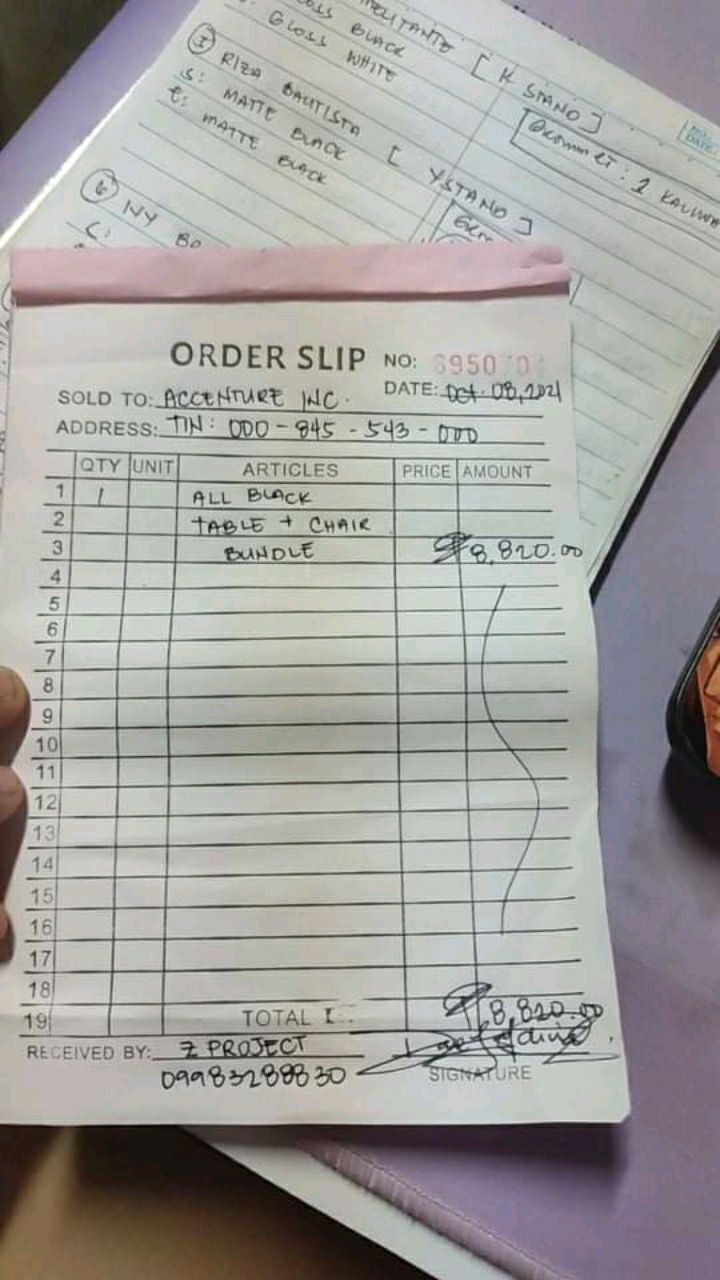 GLOSS BLACK
GLOSS WHITE
[ K STAND ]
5 RIZA BAUTISTA [ YSTAND ]
S: MATTE BLACK
t: MATTE BLACK
6 NY
C:
ORDER SLIP NO: 6950
SOLD TO: ACCENTURE INC. DATE: Oct. 08, 2021
ADDRESS: TIN: 000-845-543-000
QTY UNIT ARTICLES PRICE AMOUNT
1 1 ALL BLACK
2 TABLE + CHAIR
3 BUNDLE ₱8,820.00
4
5
6
7
8
9
10
11
12
13
14
15
16
17
18
19 TOTAL ₱8,820.00
RECEIVED BY: Z PROJECT
09983288830
SIGNATURE